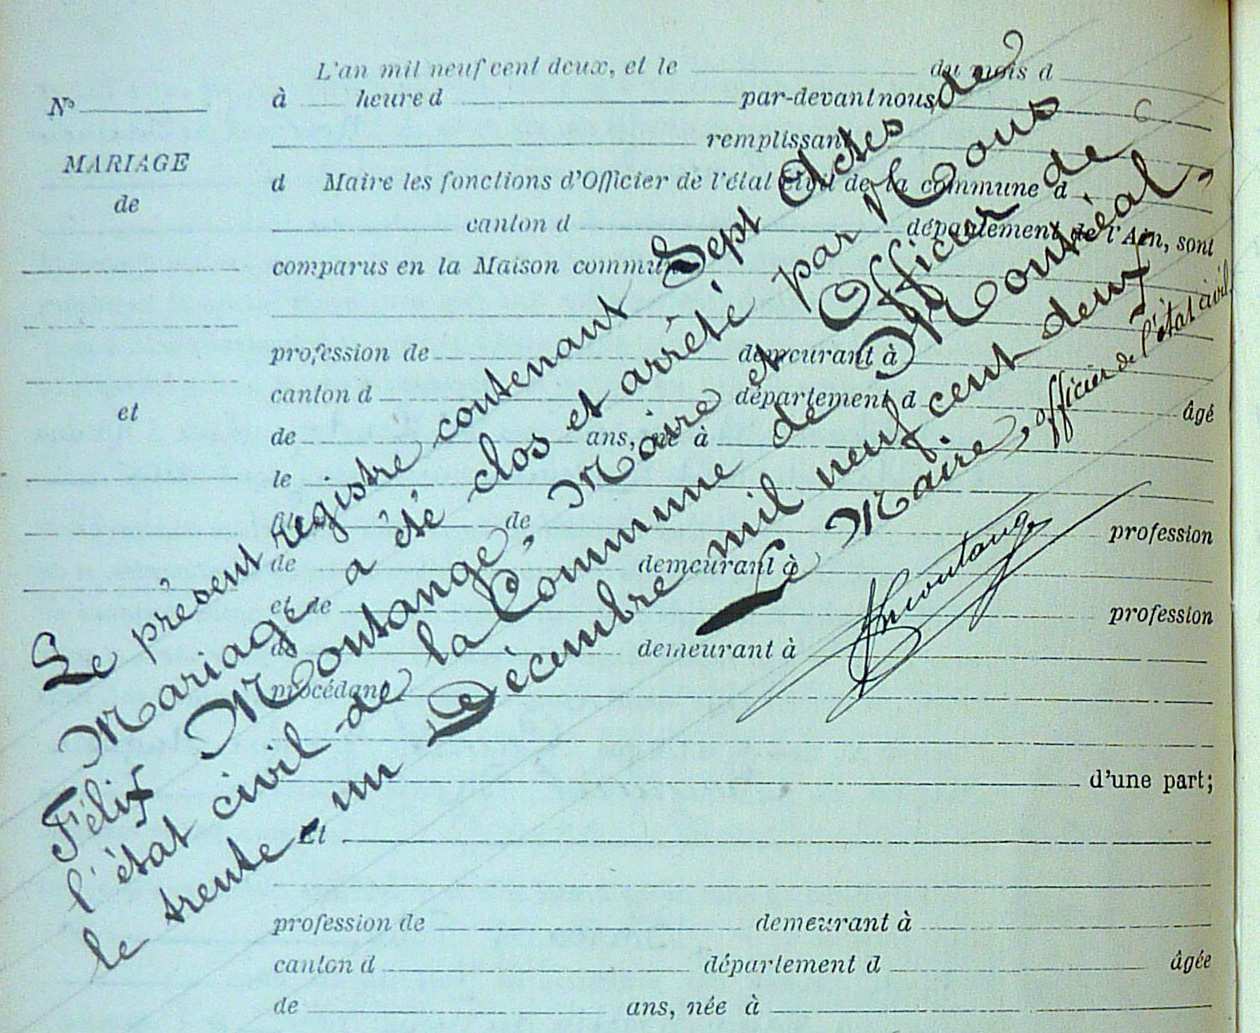 L'an mil neuf cent deux, et le du mois d
N° à heure d par-devant nous,
remplissant
MARIAGE
d Maire les fonctions d'Officier de l'état civil de la commune d
de
canton d département de l'Ain, sont
comparus en la Maison commune
profession de demeurant à
canton d département d âgé
et
de ans, né à
le
fils de profession
de demeurant à
et de profession
de demeurant à
procédant
d'une part;
Et
profession de demeurant à
canton d département d âgée
de ans, née à
Le présent registre contenant Sept Actes de
Mariage a été clos et arrêté par Nous
Félix Montange, Maire et Officier de
l'état civil de la Commune de Montréal,
le trente-un Décembre mil neuf cent deux
Le Maire, officier de l'état civil,
Fmontange